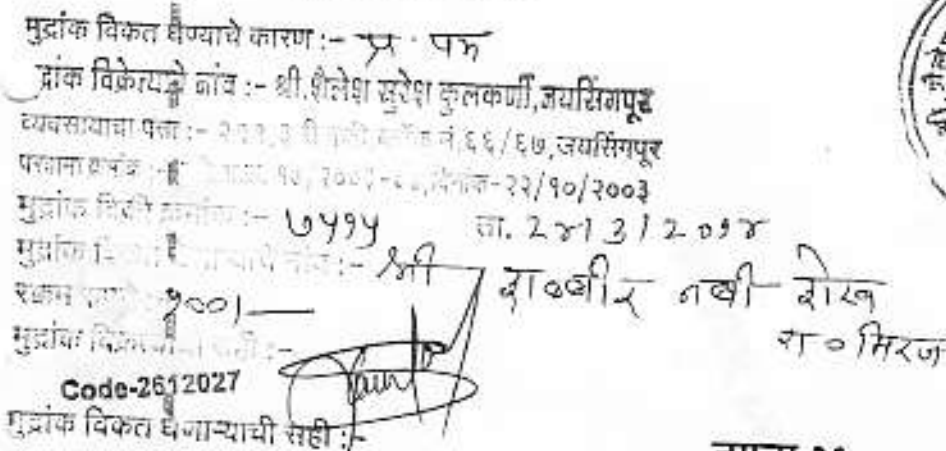 मुद्रांक विकत घेण्याचे कारण :- प्र. पत्र
द्रांक विक्रेत्याचे नांव :- श्री.शैलेश सुरेश कुलकर्णी,जयसिंगपूर
व्यवसायाचा पत्ता :- नं.६६/६७,जयसिंगपूर
परवाना क्रमांक :- दिनांक-२२/१०/२००३
मुद्रांक विक्री क्रमांक :- ७५१५ ता. 2४/3/2०१४
मुद्रांक विकत घेणाऱ्याचे नांव :- श्री शब्बीर नबी शेख
रा० मिरज
रक्कम रुपये :- १००/-
मुद्रांक विक्रेत्याची सही :-
Code-2612027
मुद्रांक विकत घेणाऱ्याची सही :-